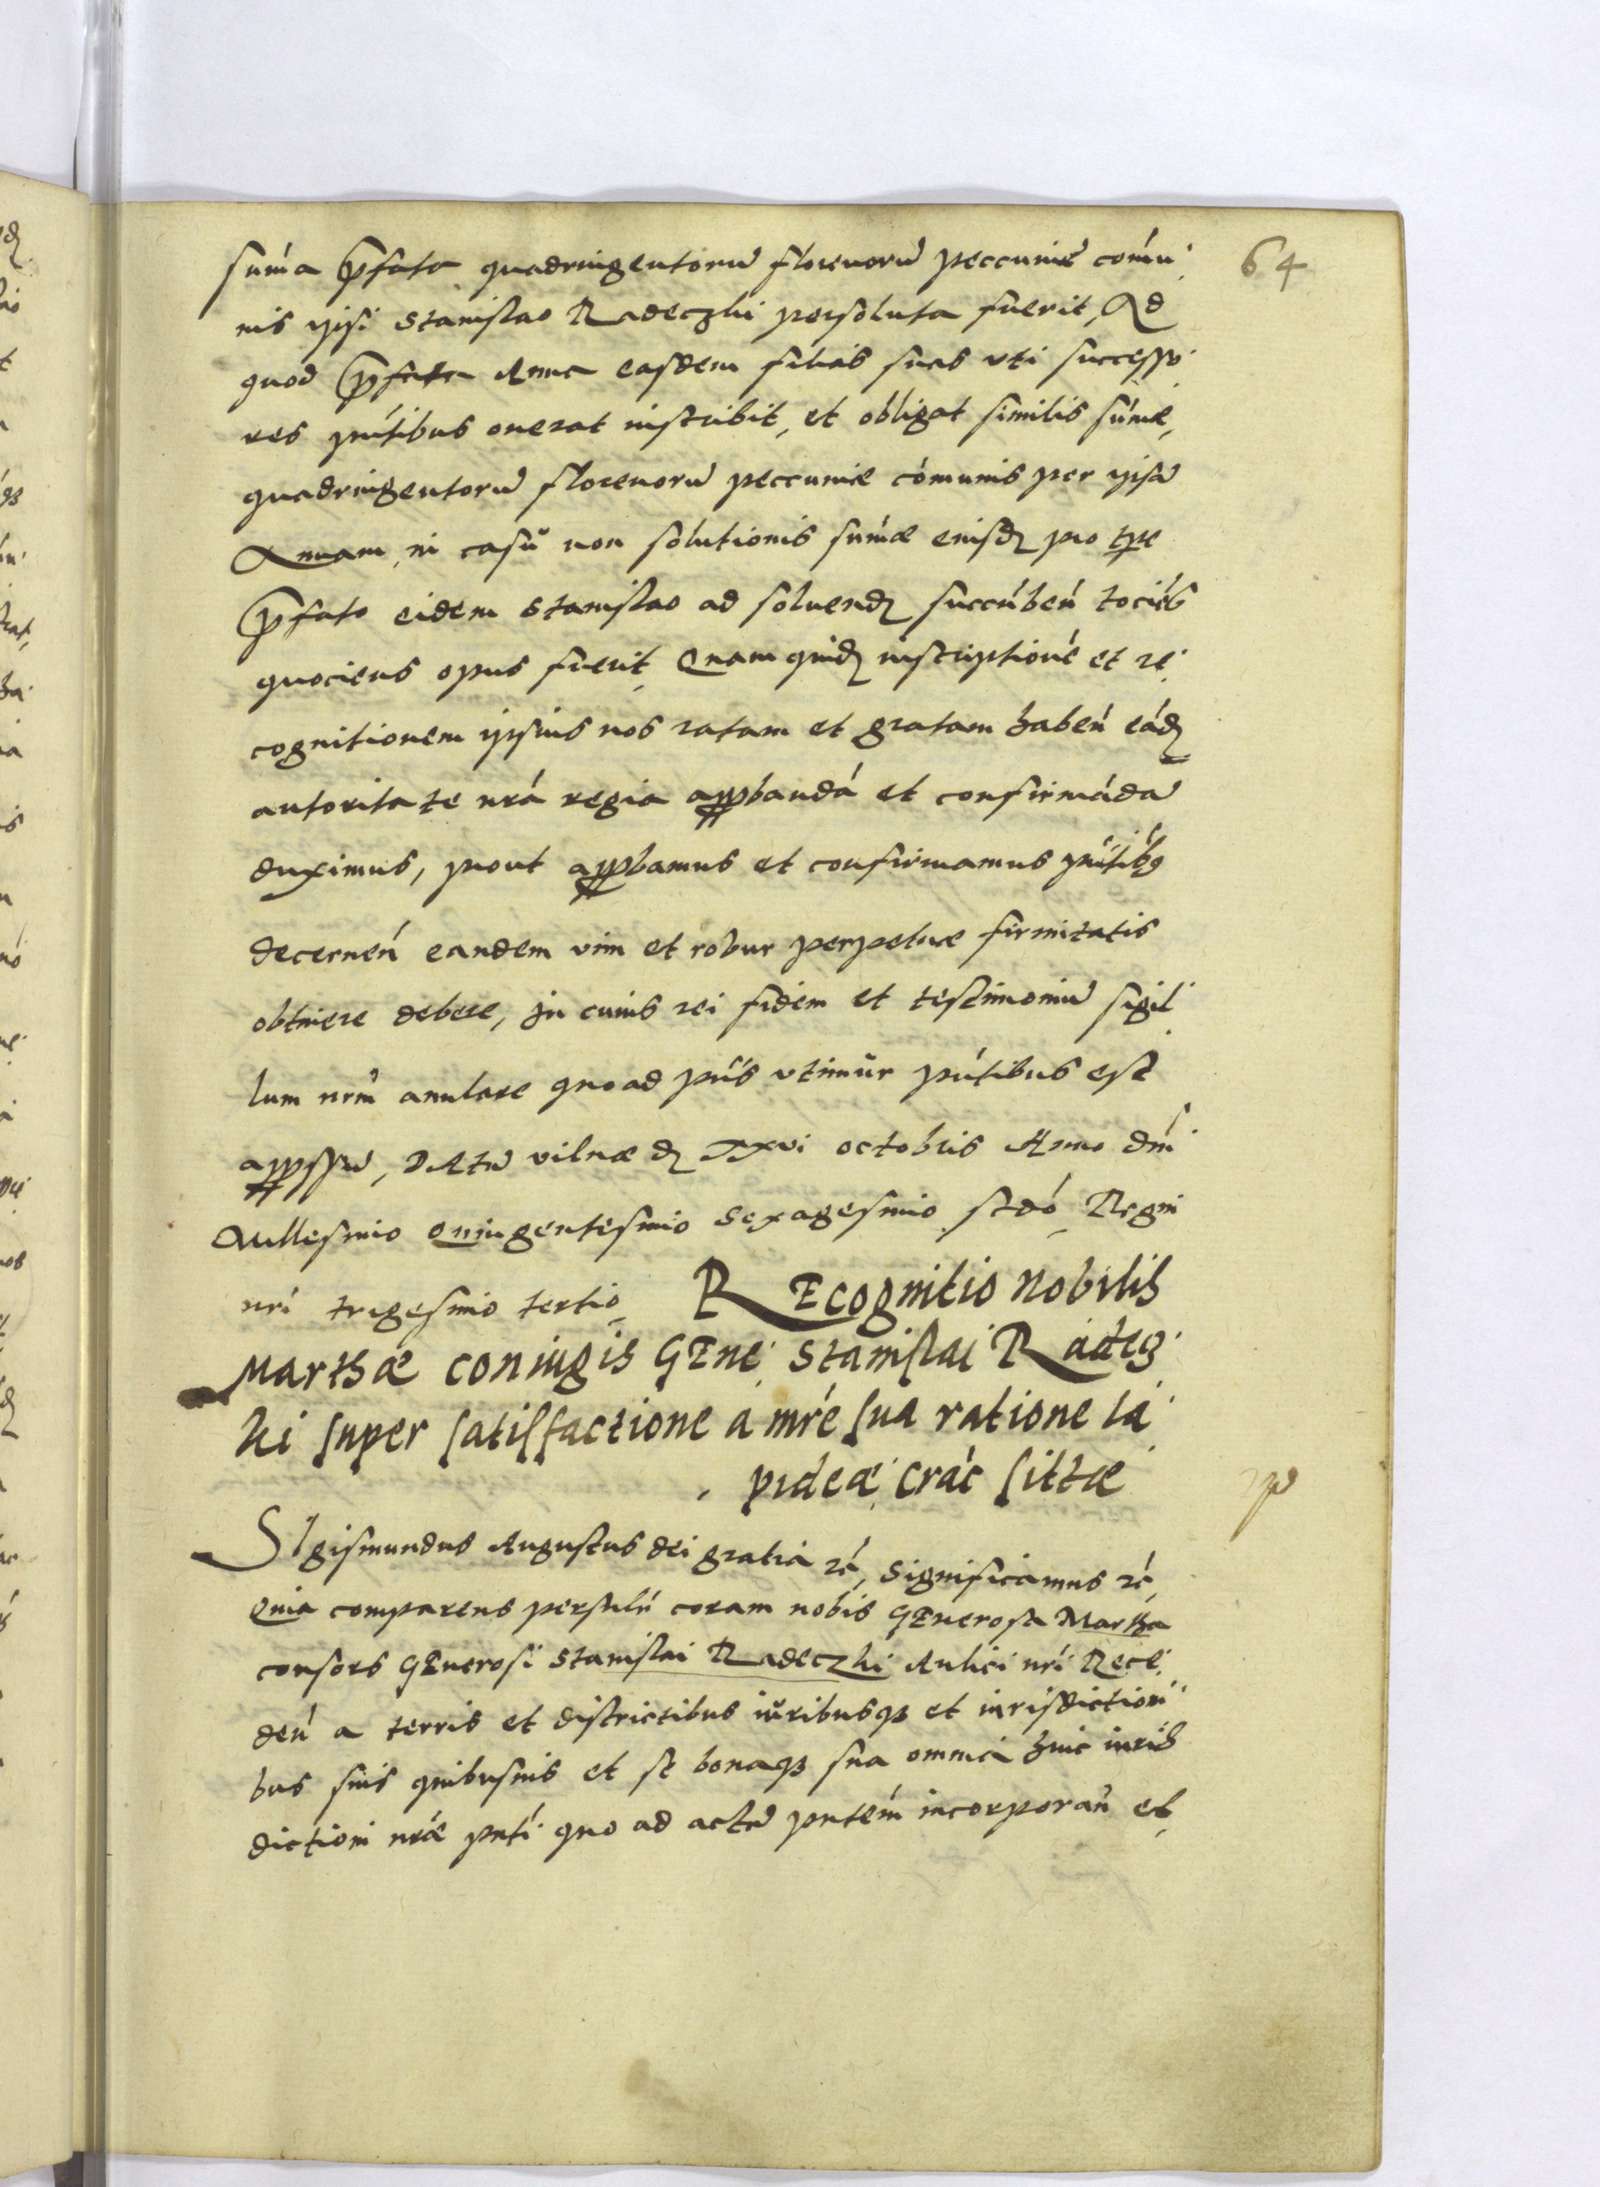 64
sum̃a p̃fata quadringentorũ florenorũ peccuniæ com̃u
nis ipsi Stanislao Radeczki persoluta fuerit, Ad
quod p̃fata Anna easdem filias suas vti successo
res pñtibus onerat inscribit, et obligat similis sum̃æ,
quadringentorũ florenorũ peccuniæ com̃unis per ipsã
Annam, in casũ non solutionis sum̃æ eiusd pro tp̃re
p̃fato eidem Stanislao ad soluend succũbeñ tociẽs
quociens opus fuerit, Quam quid inscriptionẽ et re
cognitionem ipsius nos ratam et gratam habeñ eãd
autoritate nrã regia approbandã et confirmãdã
duximus, prout approbamus et confirmamus pñtibq
decerneñ eandem vim et robur perpetuæ firmitatis
obtinere debere, In cuius rei fidem et testimoniũ sigil
lum nrm̃ anulare quo ad pñs vtimur pñtibus est
appressũ, DAtũ vilnæ d xxvi octobris Anno dñi
Millesimo Quingentesimo Sexagesimo scdõ, Regni
nrĩ trigesimo tertio, REcognitio Nobilis
Marthæ coniugis GEne Stanislai Radecz
ki super satisfactione a mr̃e sua ratione la
pideæ crac̃ sittæ
SIgismundus Augustus dei gratia rẽ, Significamus rẽ,
Quia comparens persñlr̃ coram nobis GEnerosa Martha
consors GEnerosi Stanislai Radeczki Aulici nrĩ Rece
deñ a terris et districtibus iuribusqɜ et iurisdictioni
bus suis quibusuis et se bonaqɜ sua omnia huic iuris
dictioni nræ̃ pñti quo ad actũ pñtem̃ incorporañ et,